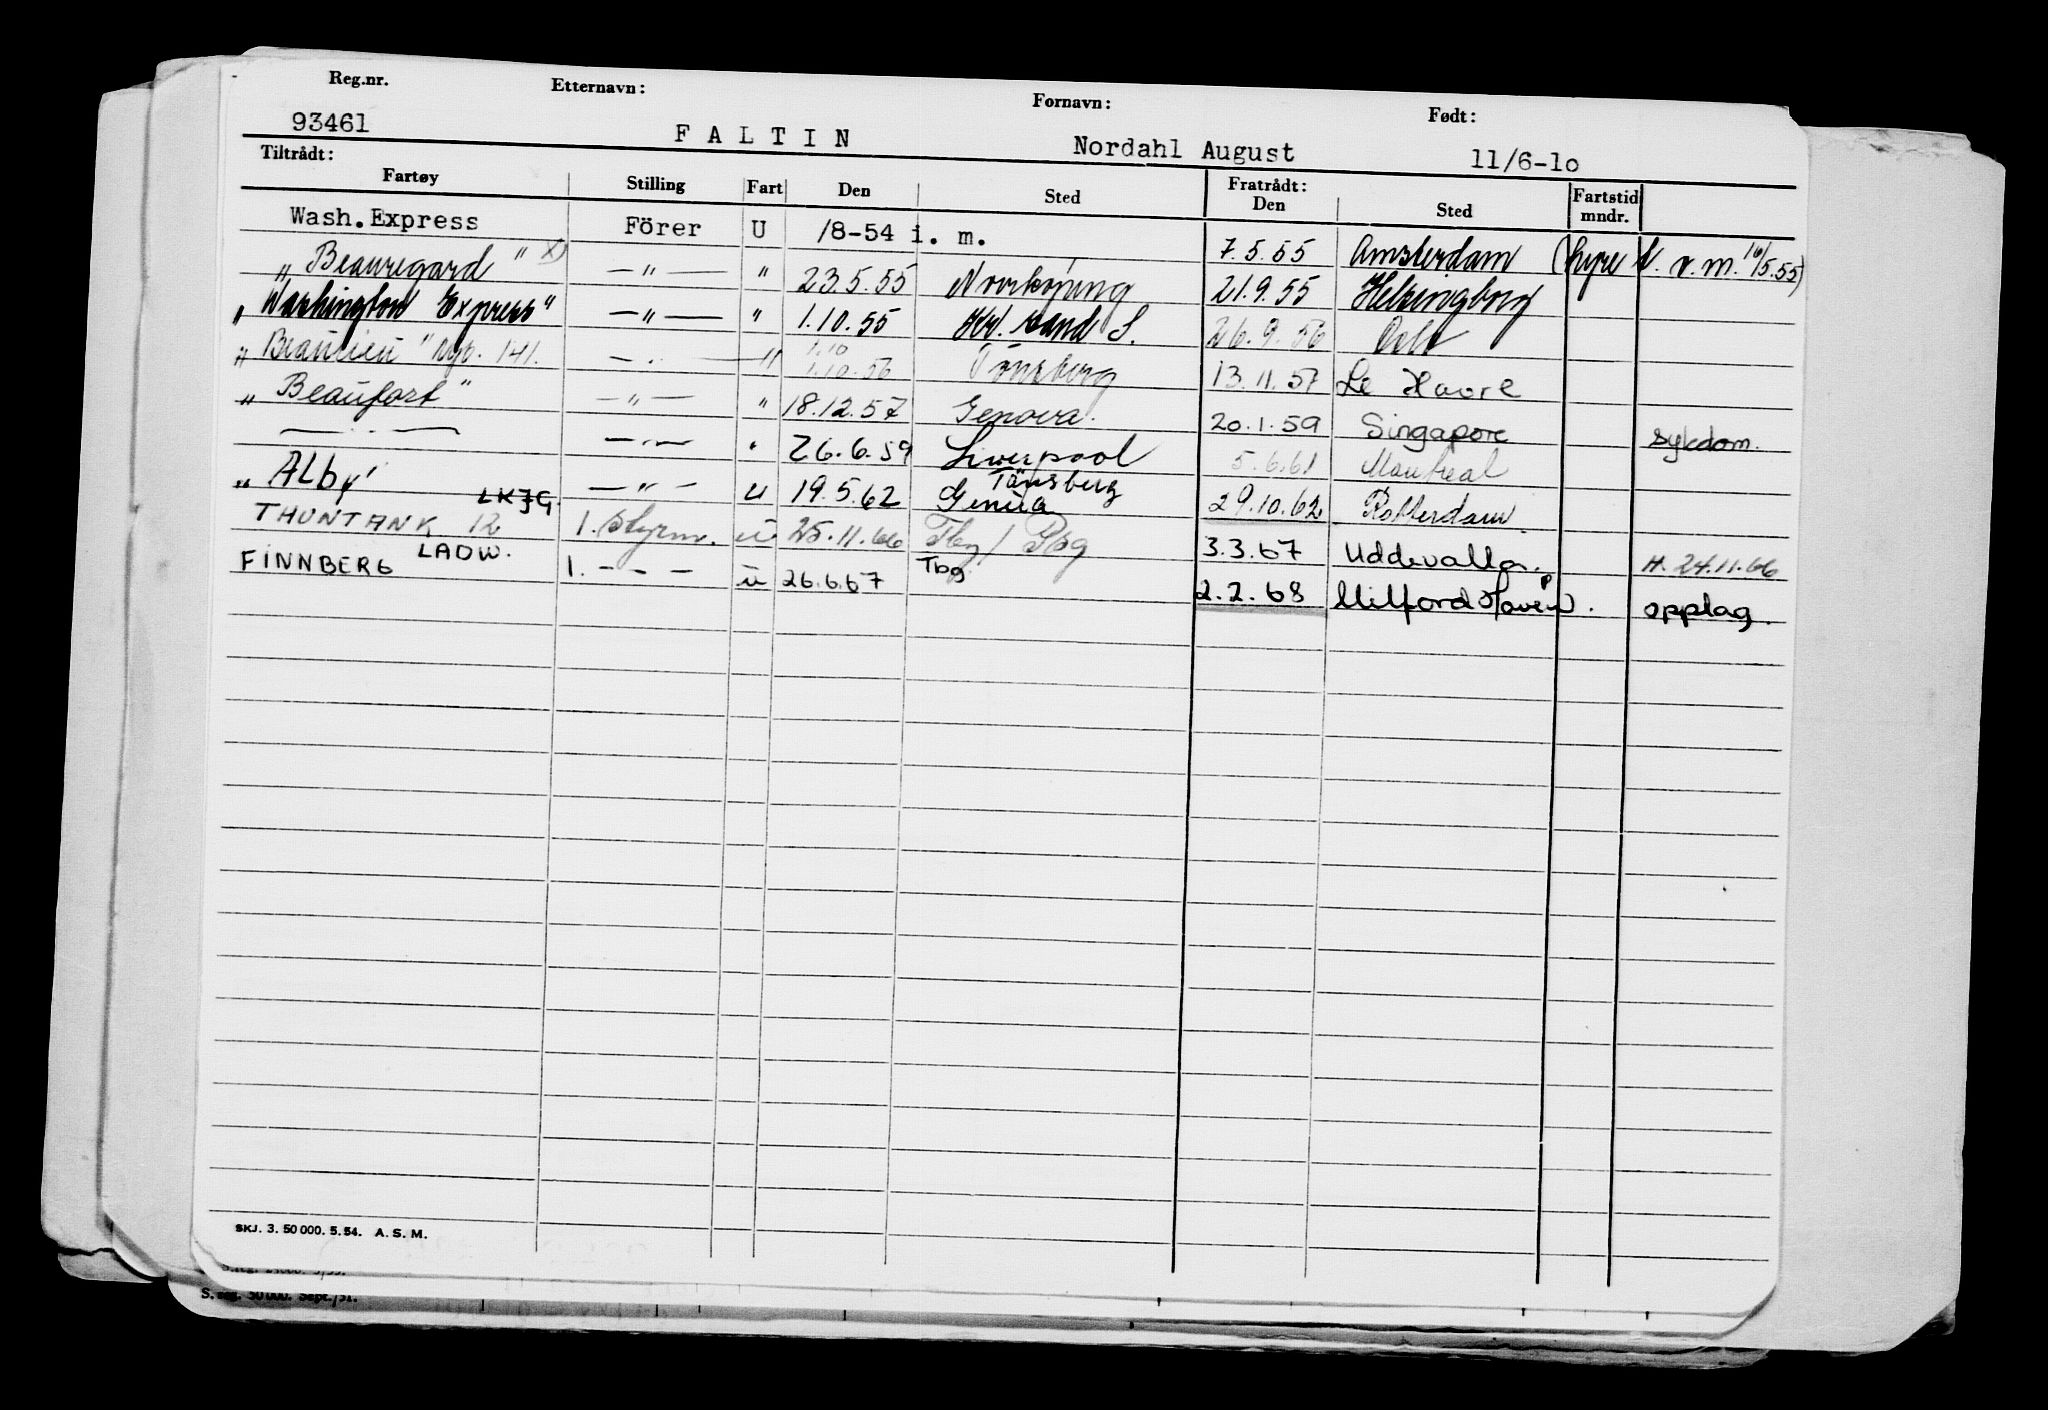 Reg.nr. Etternavn: Fornavn: Født:
93461 FALTIN Nordahl August 11/6-1o
Tiltrådt: Fratrådt:
Fartøy Stilling Fart Den Sted Den Sted Fartstid mndr.
Wash.Express Förer U /8-54 i. m. 7.5.55 Amsterdam (hyre t. v.m. 16/5.55)
"Beauregard" x) —"— " 23.5.55 Norrköping 21.9.55 Helsingborg
"Washington Express" —"— " 1.10.55 Kr. sand S. 26.9.56 Oslo
"Beaulieu" nyb. 141. —"— " 1.10 1.10.56 Tönsberg 13.11.57 Le Havre
"Beaufort" —"— " 18.12.57 Genova. 20.1.59 Singapore sykdom.
—"— —"— " 26.6.59 Liverpool 5.6.61 Montreal
"Alby" —"— u 19.5.62 Genua Tönsberg 29.10.62 Rotterdam
THUNTANK 12 LKJG. 1. styrm. u 25.11.66 Tbg / Pbg 3.3.67 Uddevalla. H. 24.11.66
FINNBERG LADW. 1. – – – u 26.6.67 Tbg 2.2.68 Milford Haven. opplag.
SKJ. 3. 50 000. 5.54. A. S. M.
S. reg. 50 000. Sept./51.